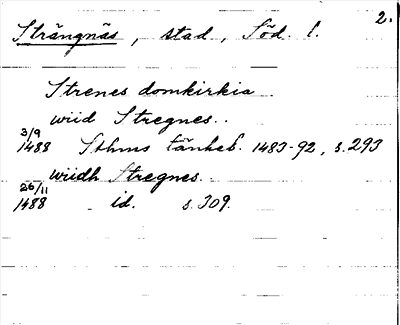 2.
Strängnäs, stad, Söd. l.
Strenes domkirkia
wiid Stregnes.
3/9
1488 Sthms tänkeb. 1483-92, s. 293
wiidh Stregnes.
26/11
1488 id. s. 309.